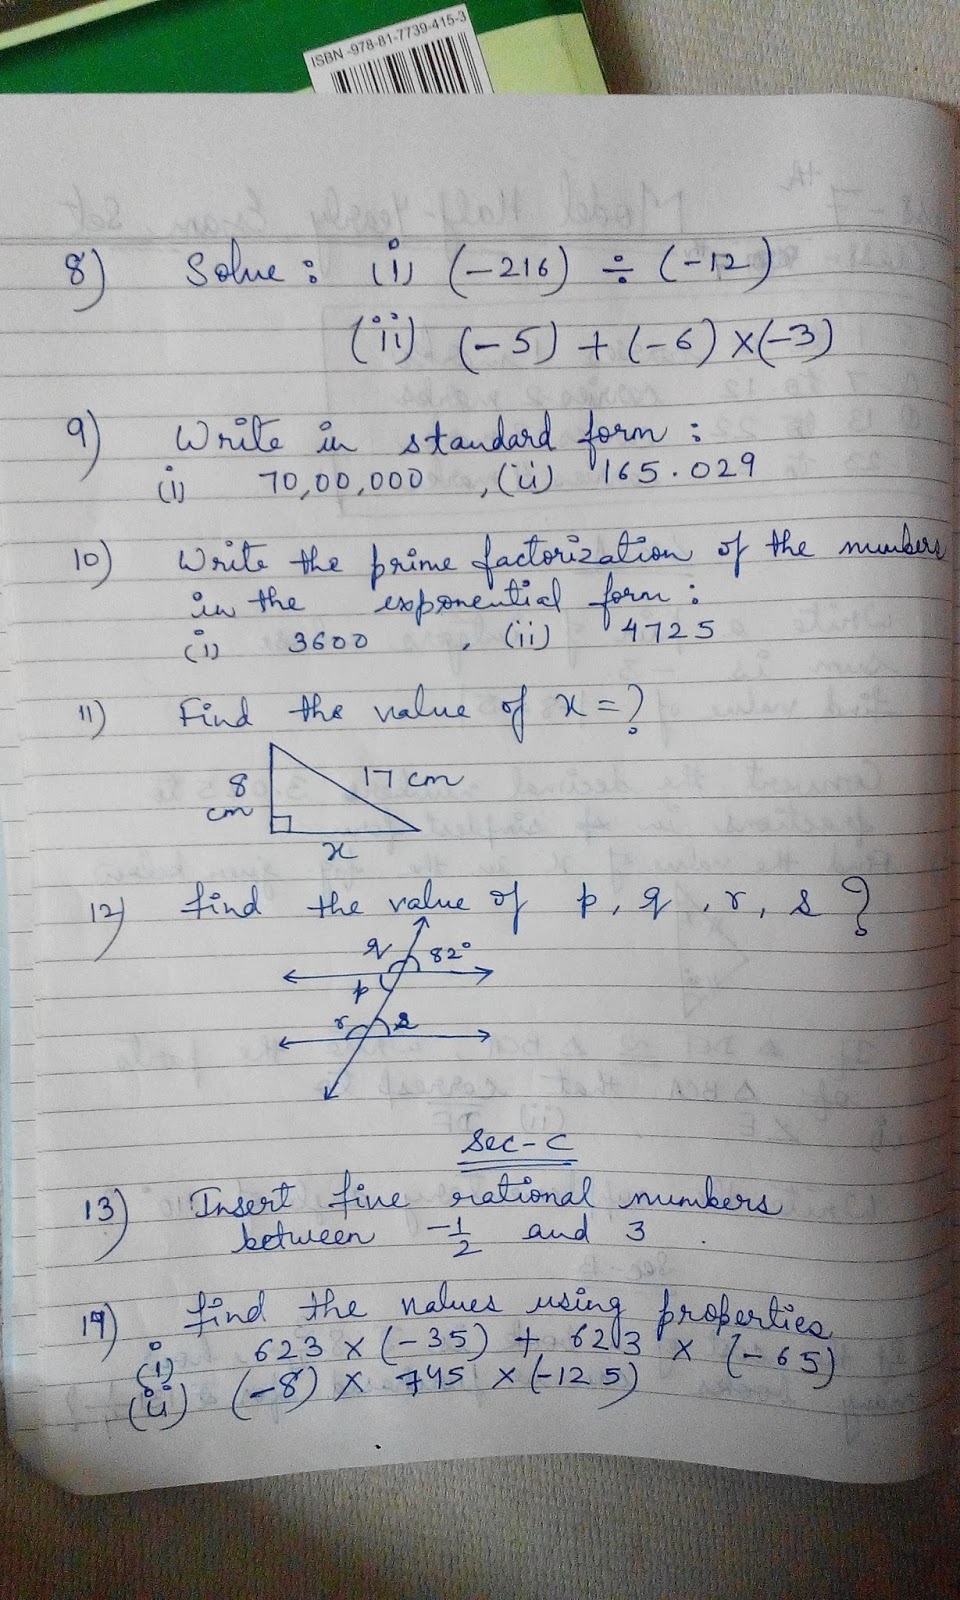 ISBN-978-81-7739-415-3
8) Solve : (i) (-216) ÷ (-12)
(ii) (-5) + (-6) ×(-3)
9) Write in standard form :
(i) 70,00,000 , (ii) 165.029
10) Write the prime factorization of the numbers
in the exponential form :
(i) 3600 , (ii) 4725
11) Find the value of x = ?
8 cm
17 cm
x
12) find the value of p, q, r, s ?
q 82°
p
r s
Sec - C
13) Insert five rational numbers
between -1/2 and 3 .
14) find the values using properties
(i) 623 × (-35) + 623 × (-65)
(ii) (-8) × 745 × (-125)